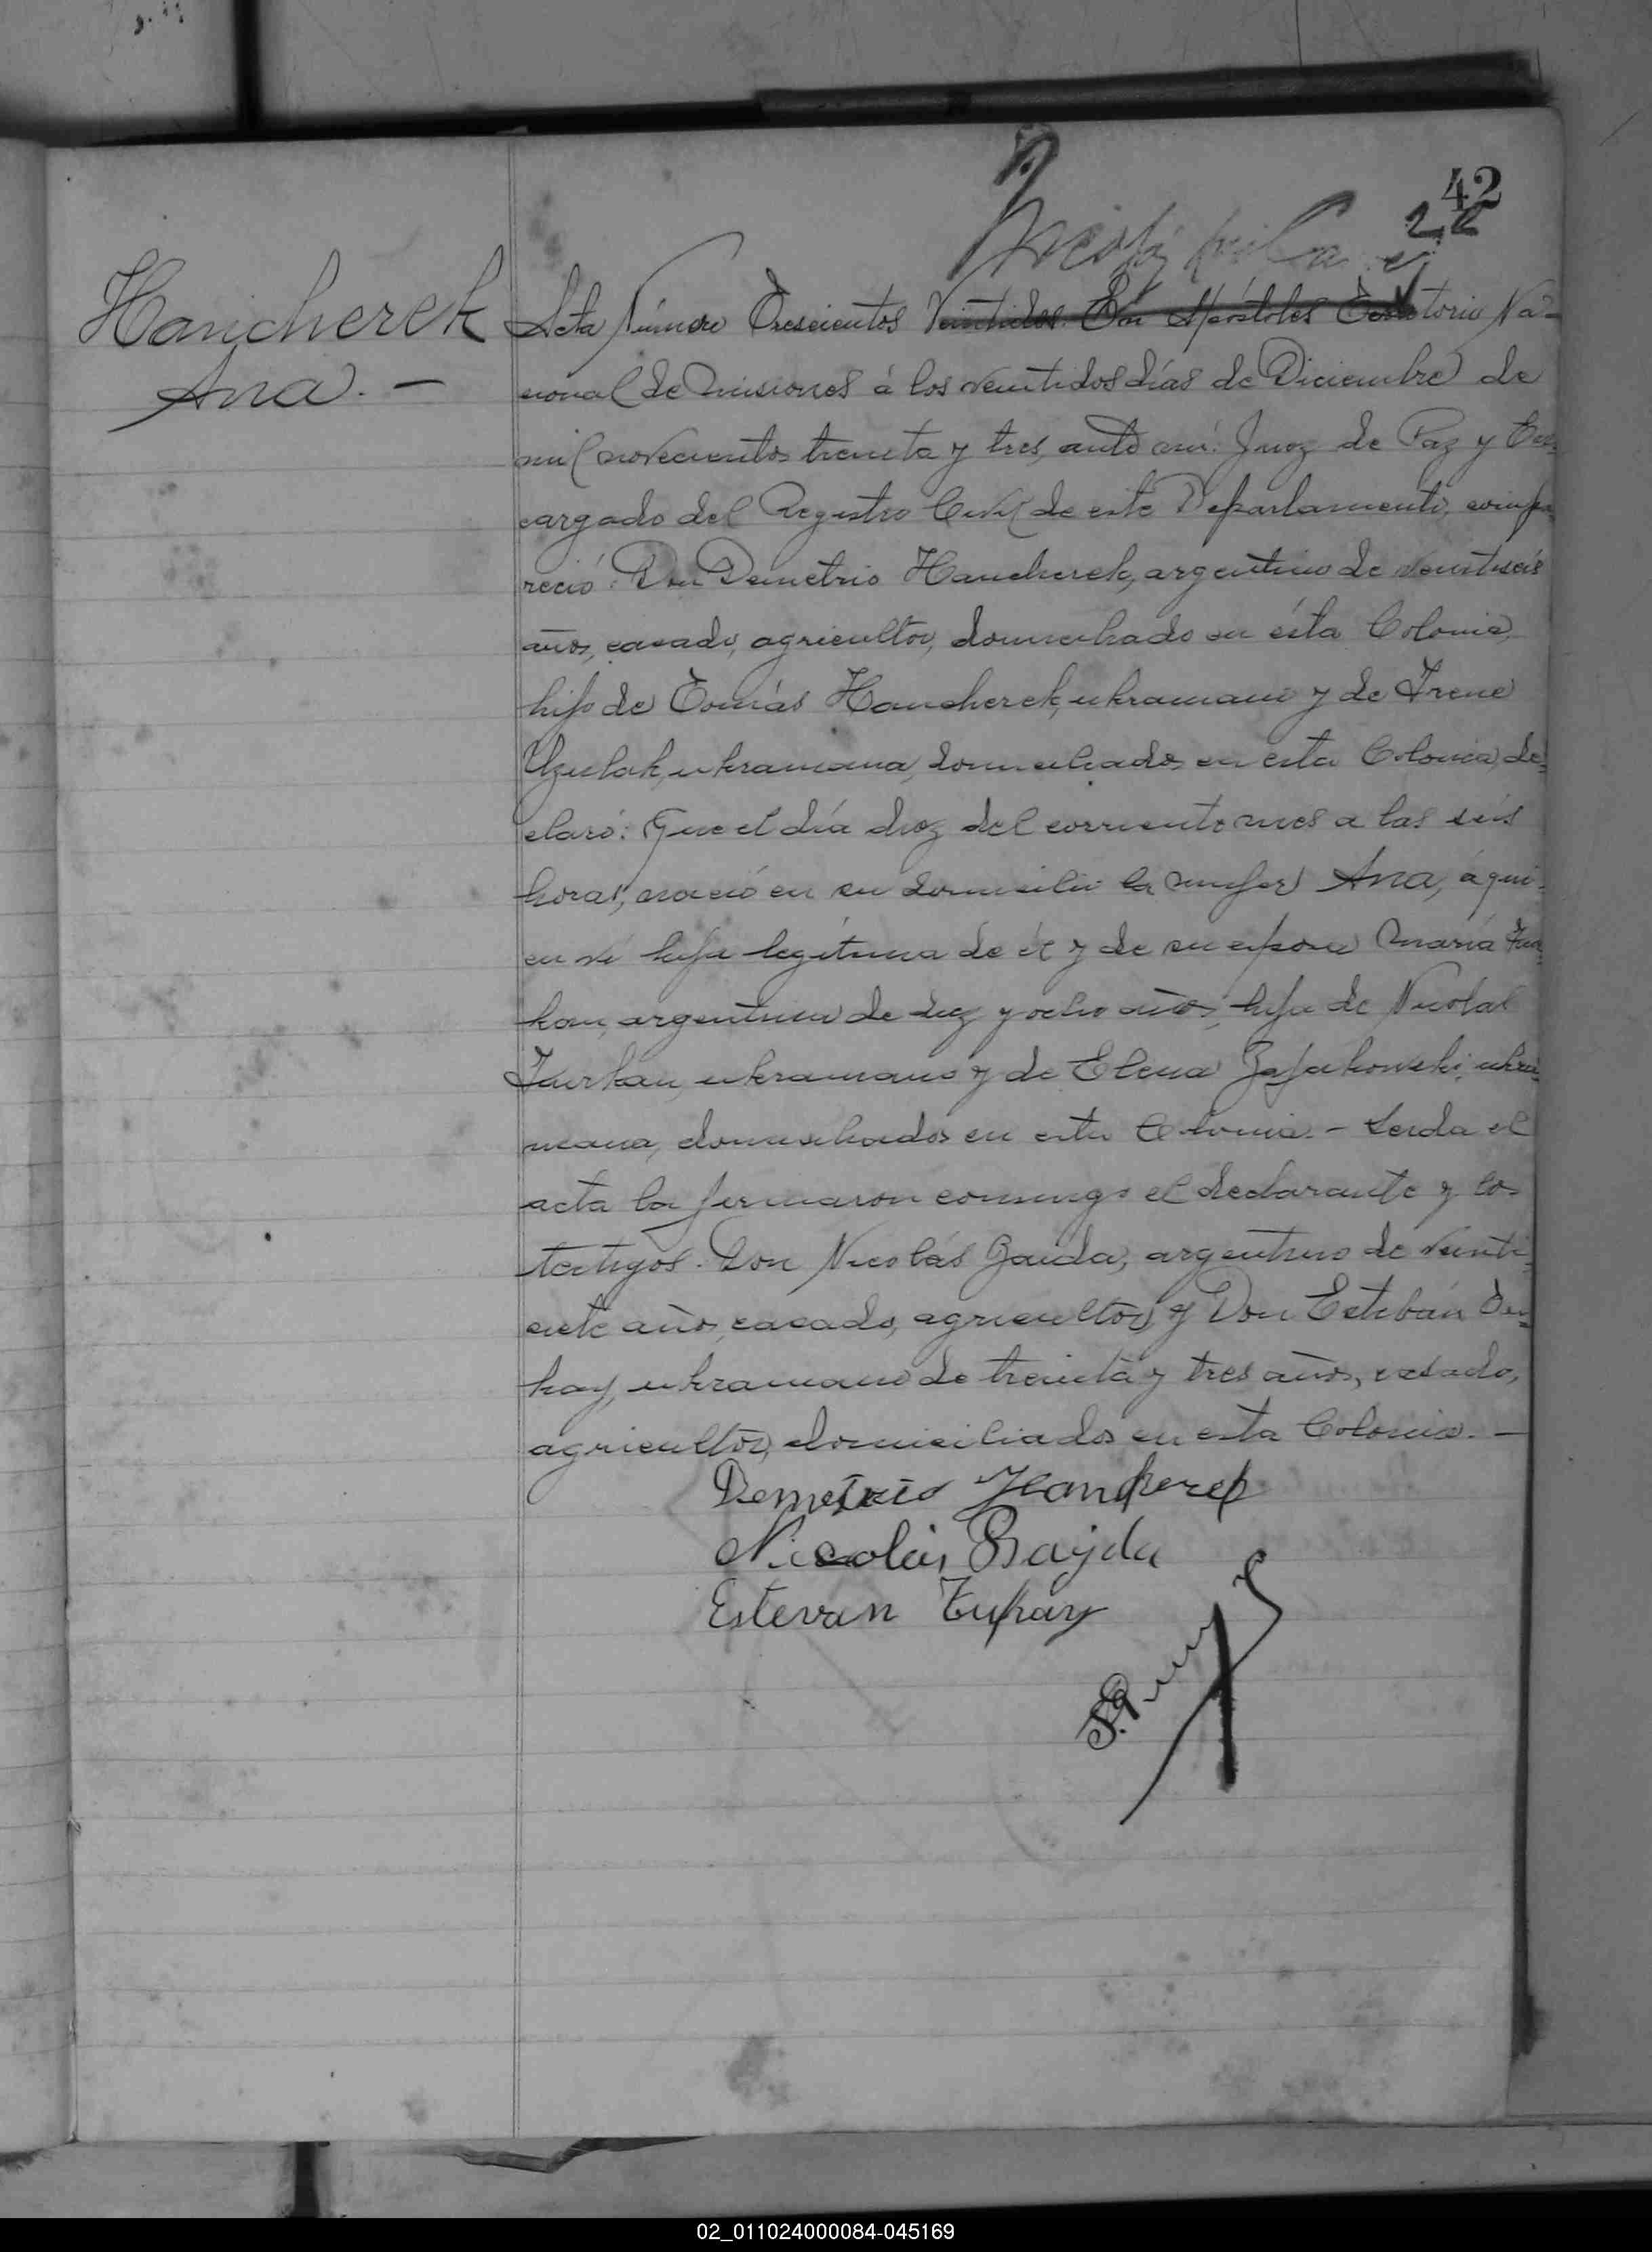 42
22
Hancherek
Ana. —
Acta Número Trescientos Veintidos. En Apóstoles Territorio Na-
cional de Misiones á los veintidos días de Diciembre de
mil novecientos treinta y tres, ante mí: Juez de Paz y En-
cargado del Registro Civil de este Departamento, compa-
reció: Don Demetrio Hancherek, argentino de veintiseis
años, casado, agricultor, domiciliado en ésta Colonia,
hijo de Tomás Hancherek, ukraniano y de Irene
Uzulak, ukraniana, domiciliados en esta Colonia, de-
claró: Que el día diez del corriente mes a las seis
horas, nació en su domicilio la mujer Ana, á qui-
en vi hija legítima de él y de su esposa María
argentina de diez y ocho años, hija de Nicolas
ukraniano y de Elena ukra-
niana, domiciliados en esta Colonia. - Leida el
acta la firmaron conmigo el declarante y los
testigos. Don Nicolás Zaida, argentino de veinti-
siete años, casado, agricultor, y Don Estebán Tu-
hay, ukraniano de treinta y tres años, casado,
agricultor, domiciliados en esta Colonia. —
Demetrio Hancherek
Nicolás Zajda
Estevan Tuhay
02_011024000084-045169